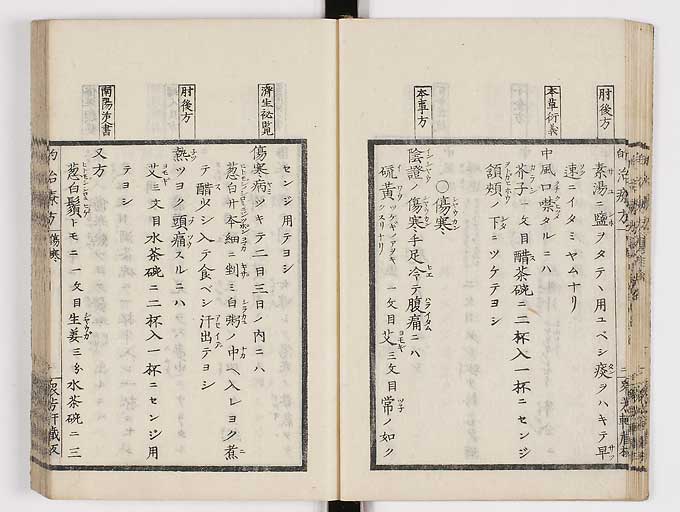 肘後方
素湯ニ鹽ヲタテヽ用ユベシ痰ヲハキテ早
速ニイタミヤムナリ
本草衍義
中風口噤タルニハ
芥子一文目醋茶碗ニ二杯入一杯ニセンジ
頷頬ノ下ニツケテヨシ
〇傷寒
本事方
陰證ノ傷寒手足冷テ腹痛ニハ
硫黄 一文目艾三文目常ノ如ク
センジ用テヨシ
濟生祕覧
傷寒病ツキテ二日三日ノ内ニハ
葱白廿本細ニ剉ミ白粥ノ中ヘ入レヨク煮
テ醋少シ入テ食ベシ汗出テヨシ
肘後方
熱ツヨク頭痛スルニハ
艾三文目水茶碗ニ二杯入一杯ニセンジ用
テヨシ
又方
葱白鬚トモニ一文目生姜三分水茶碗ニ三
治療方 傷寒